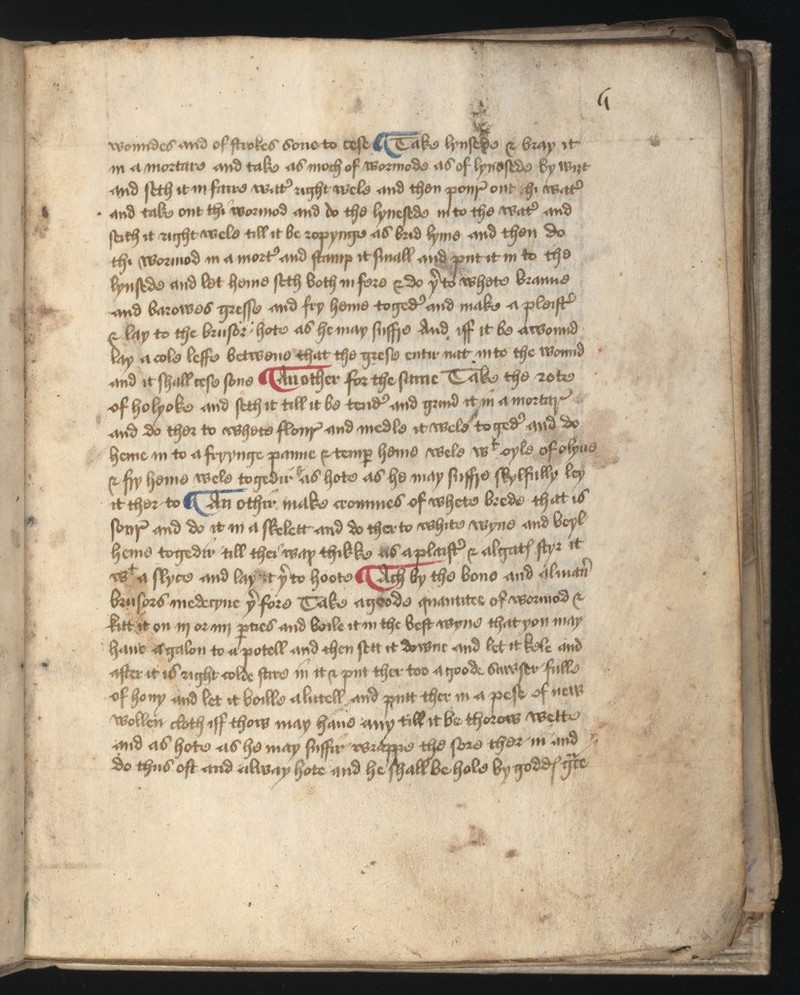 6
woundes and of strokes sone to cese ¶ Take lynsede & bray it
in a mortare and take as moch of wormode as of lynesede by wirt
and seth it in faire watꝰ right wele and then pourͬ out thi watꝰ
and take out thi wormod and do the lynesede in to the watꝰ and
seith it right wele till it be ropynge as brid lyme and then do
thi wormod in a mortꝰ and stamp it small and put it in to the
lynsede and let heme seth both in fere & do yͬ to whete branne
and barowes gresse and fry heme togedꝰ and make a plaistꝰ
& lay to the brusor hote as he may suffre And iff it be a wound
lay a cole leffe betwene that the grese entir nat in to the wound
and it shall cese sone ¶ Another for the same Take the rote
of holyoke and seth it till it be tendꝰ and grind it in a mortarͬ
and do ther to whete flourͬ and medle it wele togedꝰ and do
heme in to a fryynge panne & temp heme wele wᵗ oyle of olyue
& fry heme wele togedir & as hote as he may suffre skylfully ley
it ther to ¶ An othir make crommes of whete brede that is
sourͬ and do it in a skelett and do ther to white wyne and boyl
heme togedir till thei wax thikke as a plaistꝰ & algatꝭ styr it
wᵗ a slyce and lay it yͬ to hoote ¶ Ach by the bone and alman̄
brusors medecyne yͬ fore Take a goode quantite of wormod &
kitt it on iij or iiij ꝑties and boile it in the best wyne that you may
haue a galon to a potell and then sett it downe and let it kele and
after it is right colde stire in it & put ther too a goode sawser fulle
of hony and let it boille a lutell and putt ther in a pese of new
wollen cloth iff thow may haue any till it be thorow wette
and as hote as he may suffir wrappe the sore ther in and
do thus oft and alway hote and he shall be hole by goddꝭ gͣce